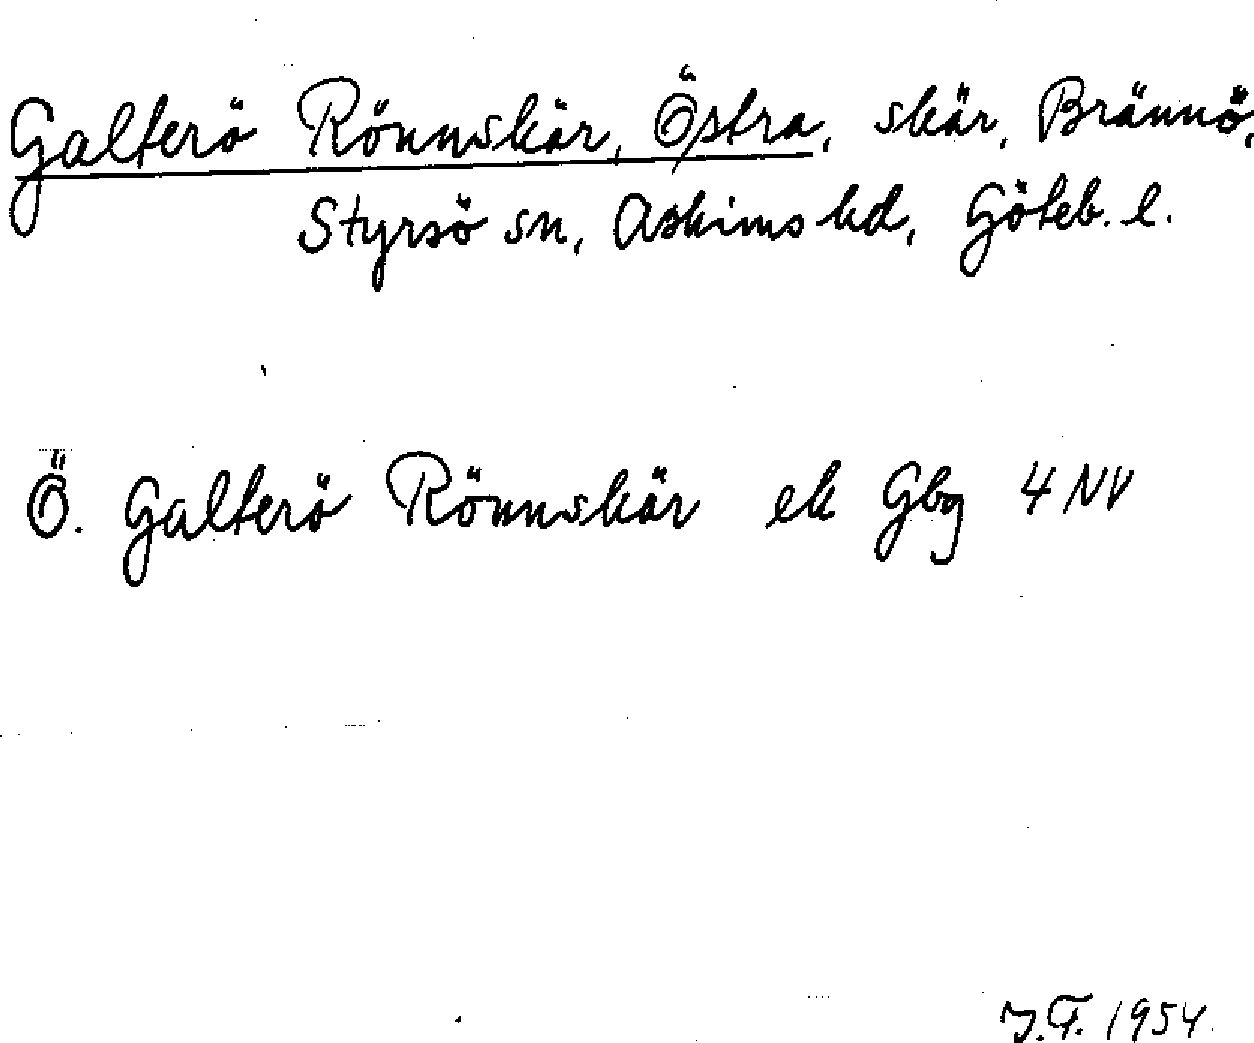 Galterö Rönnskär, Östra, skär, Brännö,
Styrsö sn, Askims hd, Göteb. l.
Ö. Galterö Rönnskär ek Gbg 4 NV
J.F. 1954.